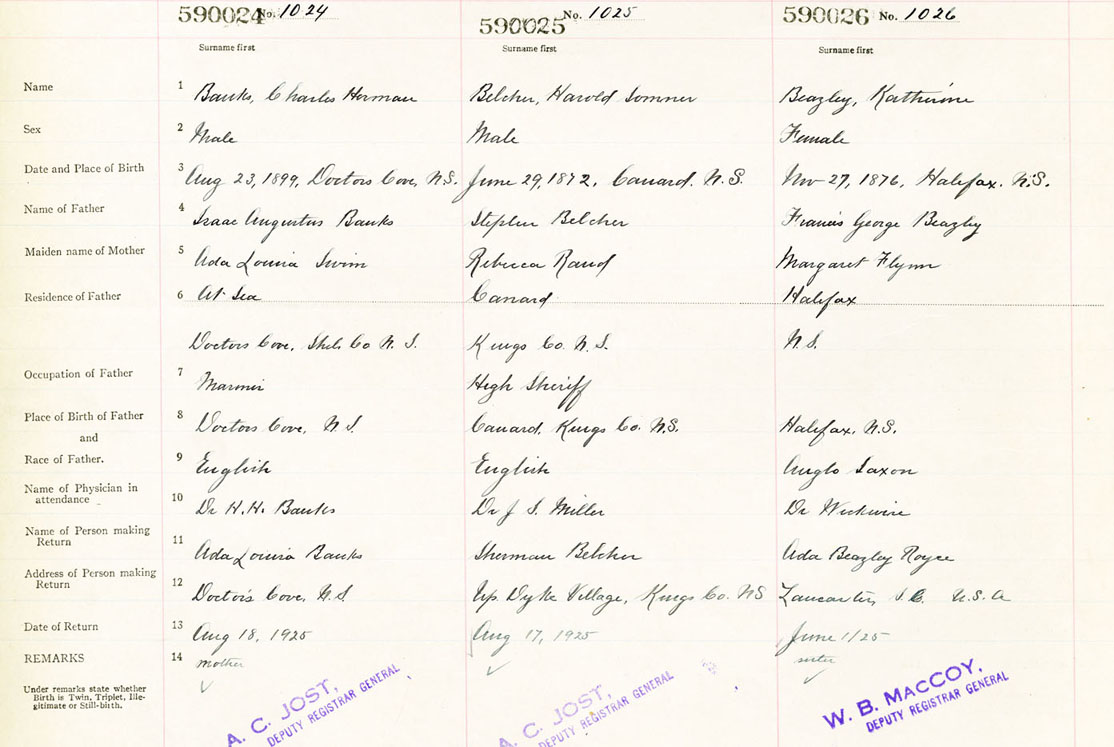 590024 No. 1024 590025 No. 1025 590026 No. 1026
Surname first Surname first Surname first
Name 1 Banks, Charles Herman Belcher, Harold Beazley, Katherine
Sex 2 Male Male Female
Date and Place of Birth 3 Aug 23, 1899, Doctors Cove, N.S. June 29, 1872, Canard. N.S. Nov 27, 1876, Halifax. N.S.
Name of Father 4 Isaac Augustus Banks Stephen Belcher Francis George Beazley
Maiden name of Mother 5 Ada Louisa Swim Rebecca Rand Margaret Flynn
Residence of Father 6 At Sea Canard Halifax
Doctors Cove, Shel. Co N.S. Kings Co. N.S. N.S.
Occupation of Father 7 High Sheriff
Place of Birth of Father 8 Doctors Cove, N.S. Canard, Kings Co. N.S. Halifax, N.S.
and
Race of Father. 9 English English Anglo Saxon
Name of Physician in
attendance 10 Dr H.H. Banks Dr J S. Miller Dr Wickwire
Name of Person making
Return 11 Ada Louisa Banks Sherman Belcher Ada Beazley Royce
Address of Person making
Return 12 Doctors Cove, N.S. Up. Dyke Village, Kings Co. NS Lancaster, S.C. U.S.A
Date of Return 13 Aug 18, 1925 Aug 17, 1925 June 1/25
REMARKS 14 mother sister
Under remarks state whether
Birth is Twin, Triplet, Ille-
gitimate or Still-birth.
A. C. JOST,
DEPUTY REGISTRAR GENERAL
A. C. JOST,
DEPUTY REGISTRAR GENERAL
W. B. MACCOY,
DEPUTY REGISTRAR GENERAL